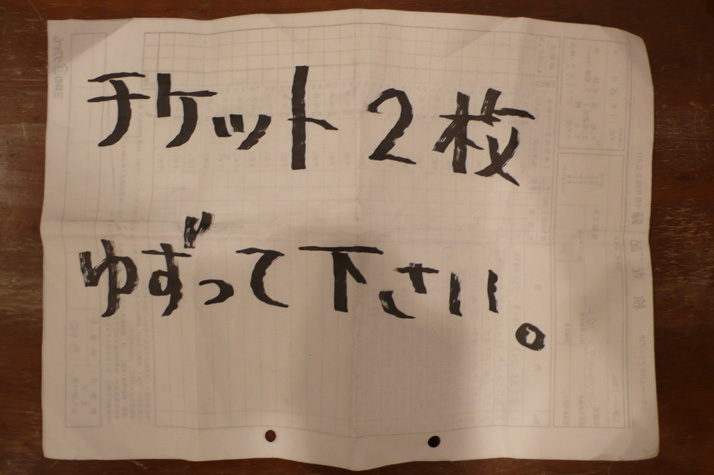 チケット2枚
ゆずって下さい。